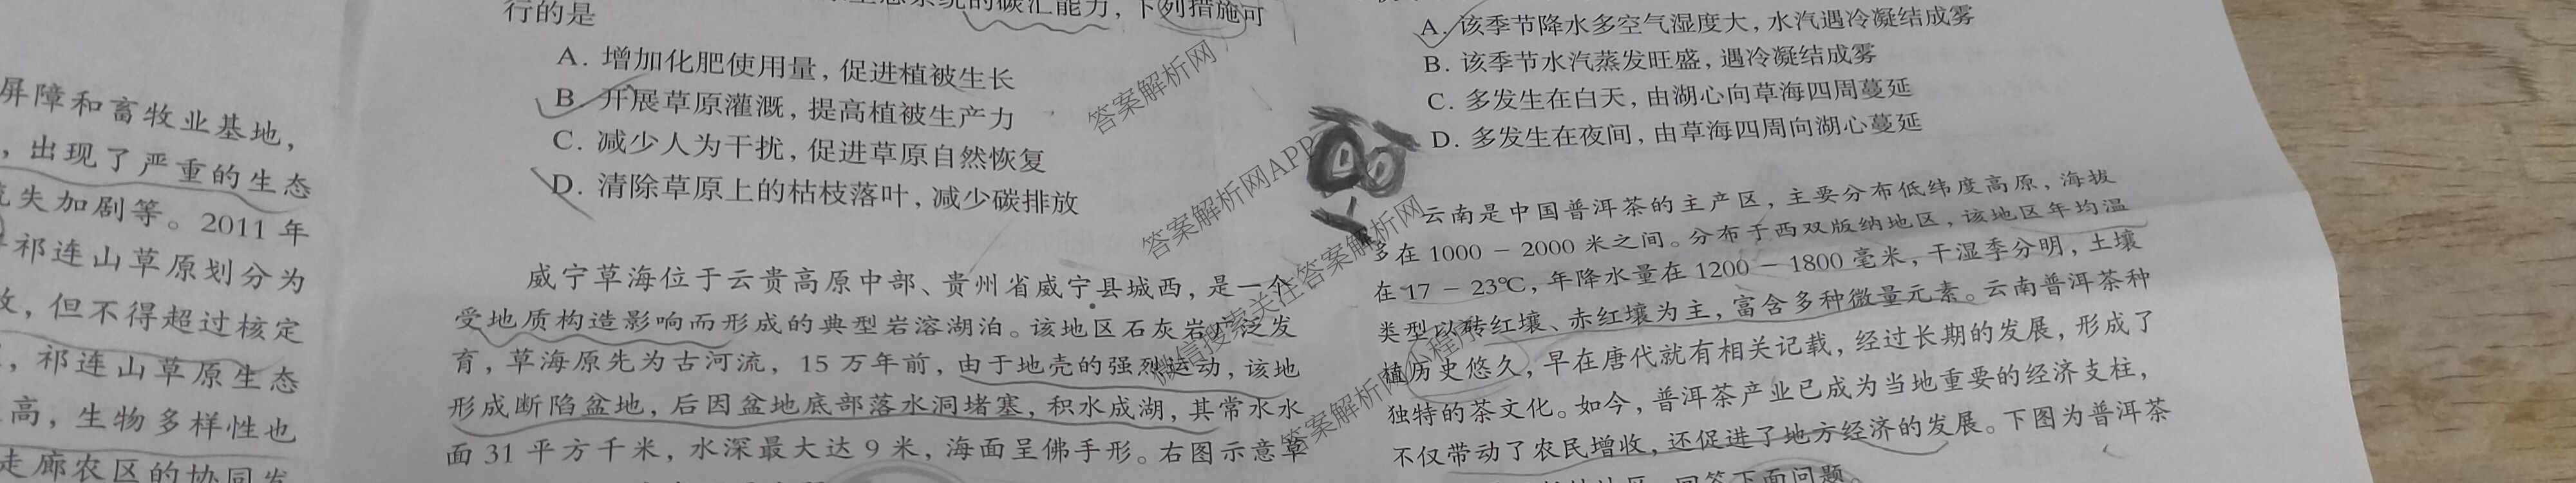 屏障和畜牧业基地，
，出现了严重的生态
失加剧等。2011 年
祁连山草原划分为
但不得超过核定
祁连山草原生态
高，生物多样性也
走廊农区的协同发
生态系统的碳汇能力，下列措施可
行的是
A. 增加化肥使用量，促进植被生长
B. 开展草原灌溉，提高植被生产力
C. 减少人为干扰，促进草原自然恢复
D. 清除草原上的枯枝落叶，减少碳排放
威宁草海位于云贵高原中部、贵州省威宁县城西，是一个
受地质构造影响而形成的典型岩溶湖泊。该地区石灰岩广泛发
育，草海原先为古河流，15 万年前，由于地壳的强烈运动，该地
形成断陷盆地，后因盆地底部落水洞堵塞，积水成湖，其常水水
面 31 平方千米，水深最大达 9 米，海面呈佛手形。右图示意草
A. 该季节降水多空气湿度大，水汽遇冷凝结成雾
B. 该季节水汽蒸发旺盛，遇冷凝结成雾
C. 多发生在白天，由湖心向草海四周蔓延
D. 多发生在夜间，由草海四周向湖心蔓延
云南是中国普洱茶的主产区，主要分布低纬度高原，海拔
多在 1000 - 2000 米之间。分布于西双版纳地区，该地区年均温
在 17 - 23℃，年降水量在 1200 - 1800 毫米，干湿季分明，土壤
类型以砖红壤、赤红壤为主，富含多种微量元素。云南普洱茶种
植历史悠久，早在唐代就有相关记载，经过长期的发展，形成了
独特的茶文化。如今，普洱茶产业已成为当地重要的经济支柱，
不仅带动了农民增收，还促进了地方经济的发展。下图为普洱茶
回答下面问题。
答案解析网
答案解析网APP
微信搜索关注答案解析网
答案解析网小程序